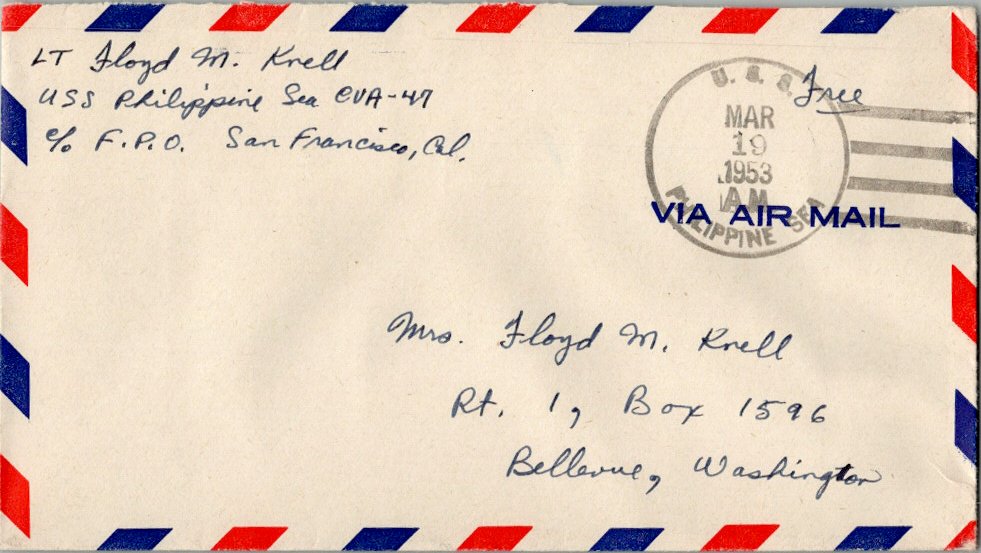 LT Floyd M. Knell
USS Philippine Sea CVA-47
c/o F.P.O. San Francisco, Cal.
Free
U. S. S.
MAR
19
1953
AM
PHILIPPINE SEA
VIA AIR MAIL
Mrs. Floyd M. Knell
Rt. 1, Box 1596
Bellevue, Washington